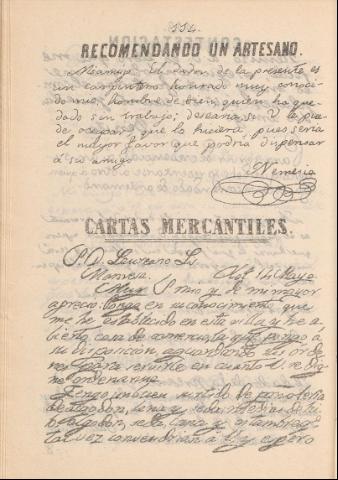 114.
RECOMENDANDO UN ARTESANO.
Mi amigo: El dador de la presente es
un carpintero honrado muy conoci-
do mio, hombre de bien, quien ha que-
dado sin trabajo; desearia, si V. le pue-
de ocupar, que lo hiciera, pues seria
el mayor favor que podria dispensar
á su amigo
Nemesio
CARTAS MERCANTILES.
S. D. Laureano L.
Manresa. 14 Mayo
Muy S. mio y de mi mayor
aprecio: Pongo en su conocimiento que
me he establecido en esta villa y he a-
bierto casa de comercio, la que pongo á
su disposicion, aguardando sus órde-
nes para servirle en cuanto V. se dig-
ne ordenarme.
Tengo un buen surtido de pañoleria
de algodon, lana y seda,
algodon, seda, lana y estambre
tal vez convendrian á V. y espero